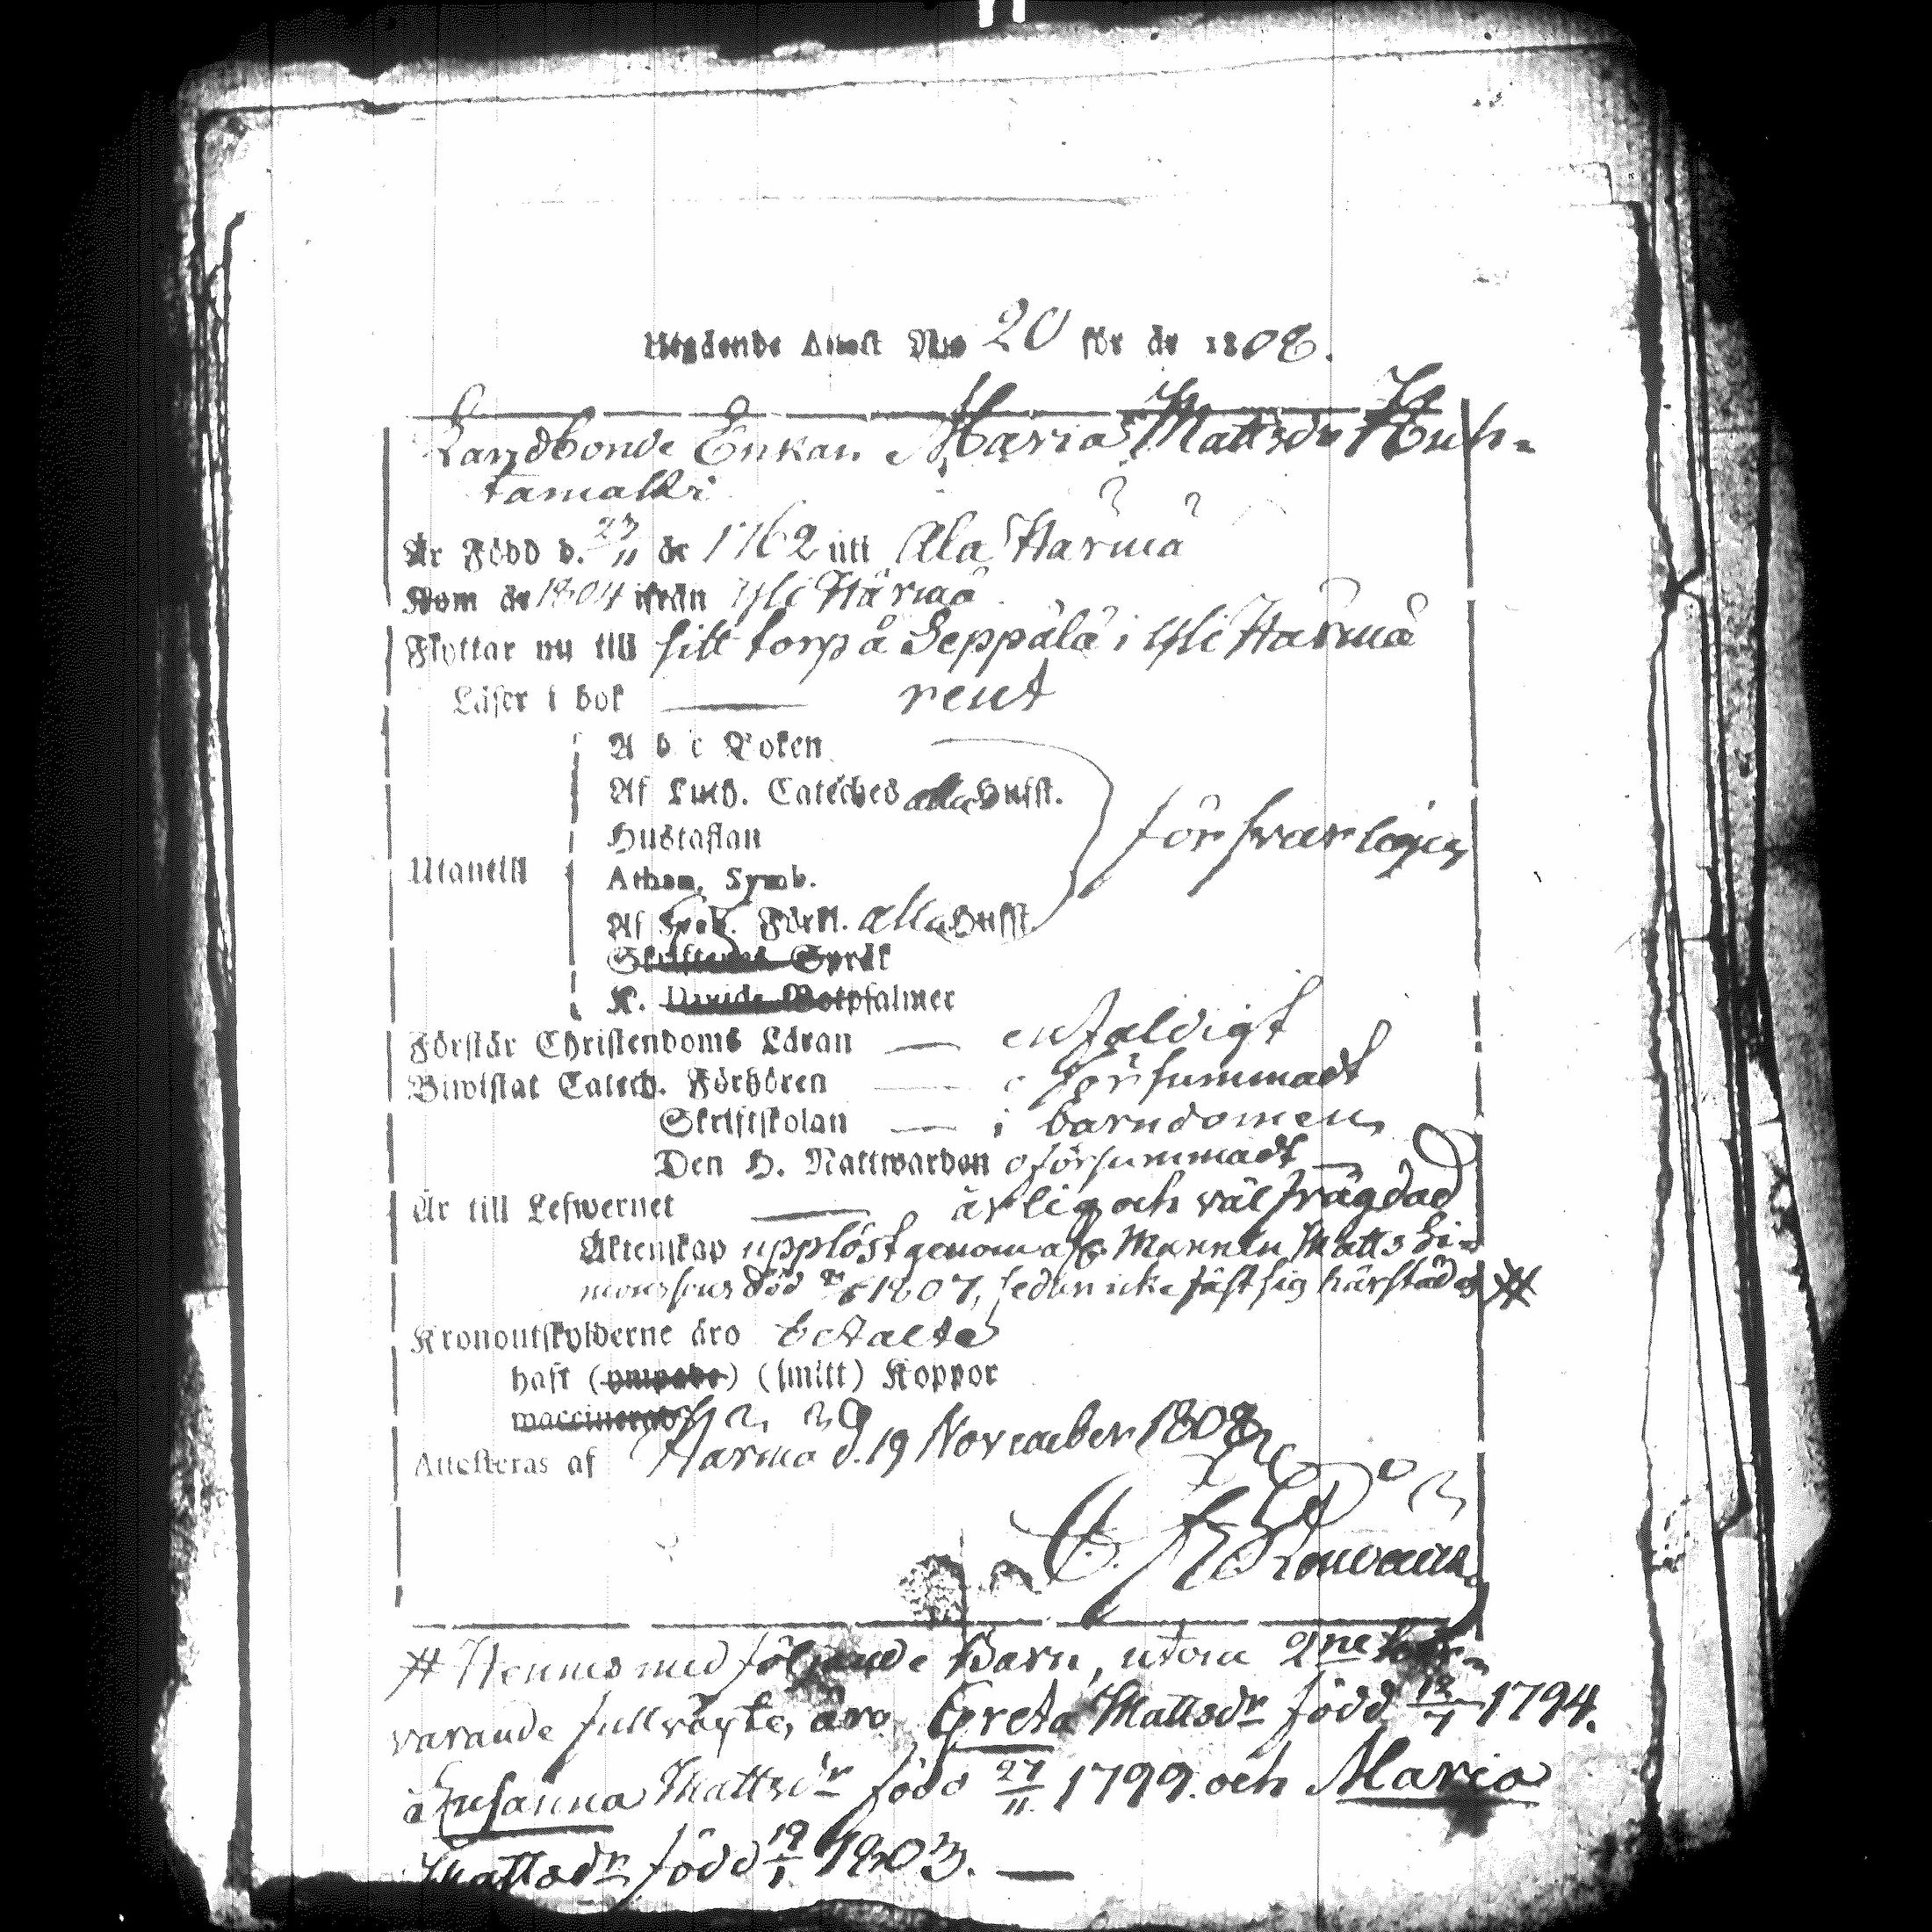 Utgående Attest No 20 för år 1808.
Landbonde Enkan Maria Mattsdr Huh-
tamakki
Är Född d. 23/11 år 1762 uti Ala Härmä
Kom år 1804 ifrån Yli Härmä
Flyttar nu till sitt torp å Seppälä i Yli Härmä
Läser i bok — rent
A b c Boken
Af Luth. Cateches alla Hufst.
Hustaflan
försvarligen
Utantill
Athan. Symb.
Af Förkl. alla Hufst.
Skriftenes Språk
K. Davids Botpsalmer
Förstår Christendoms Läran — enfaldigt
Biwistat Catech. Förhören — oförsummadt
Skriftskolan — i barndomen
Den H. Nattwarden oförsummadt
Är till Lefwernet — ärlig och väl frägdad
Äktenskap upplöst genom Mannen Matts Si-
monssons död 1807, sedan icke fäst sig härstädes #
Kronoutskylderne äro betalte
haft (ympade) (smitt) Koppor
waccinerad
Attesteras af Härmä d. 19 November 1808
# Hennes med följande Barn, utom 2ne
varande fullväxte, äro Greta Mattsdr född 12/7 1794.
Susanna Mattsdr född 27/11 1799. och Maria
Mattsdr född 19/1 1803. —